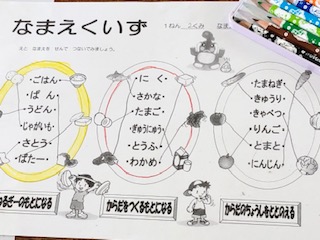 なまえくいず
1ねん 2くみ なま
えと なまえを せんで つないでみましょう。
・ごはん
・ぱ ん
・うどん
・じゃがいも・
・さとう・
・ばたー・
・に く・
・さかな・
・たまご・
・ぎゅうにゅう・
・とうふ・
・わかめ・
・たまねぎ・
・きゅうり・
・きゃべつ・
・りんご・
・とまと・
・にんじん・
ねるぎーのもとになる
からだをつくるもとになる
からだのちょうしをととのえる